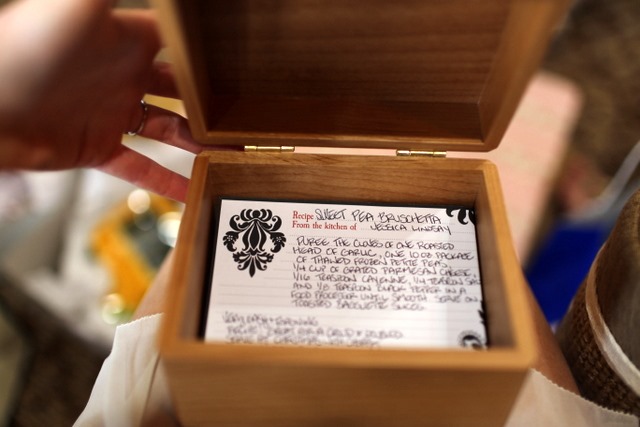 Recipe SWEET PEA BRUSCHETTA
From the kitchen of JESSICA LINDSAY
PUREE THE CLOVES OF ONE ROASTED
HEAD OF GARLIC, ONE 10 OZ PACKAGE
OF THAWED FROZEN PETITE PEAS,
1/4 CUP OF GRATED PARMESAN CHEESE,
1/16 TEASPOON CAYENNE, 1/4 TEASPOON SALT
AND 1/8 TEASPOON BLACK PEPPER IN A
FOOD PROCESSOR UNTIL SMOOTH. SERVE ON
TOASTED BAGUETTE SLICES.
VERY EASY +